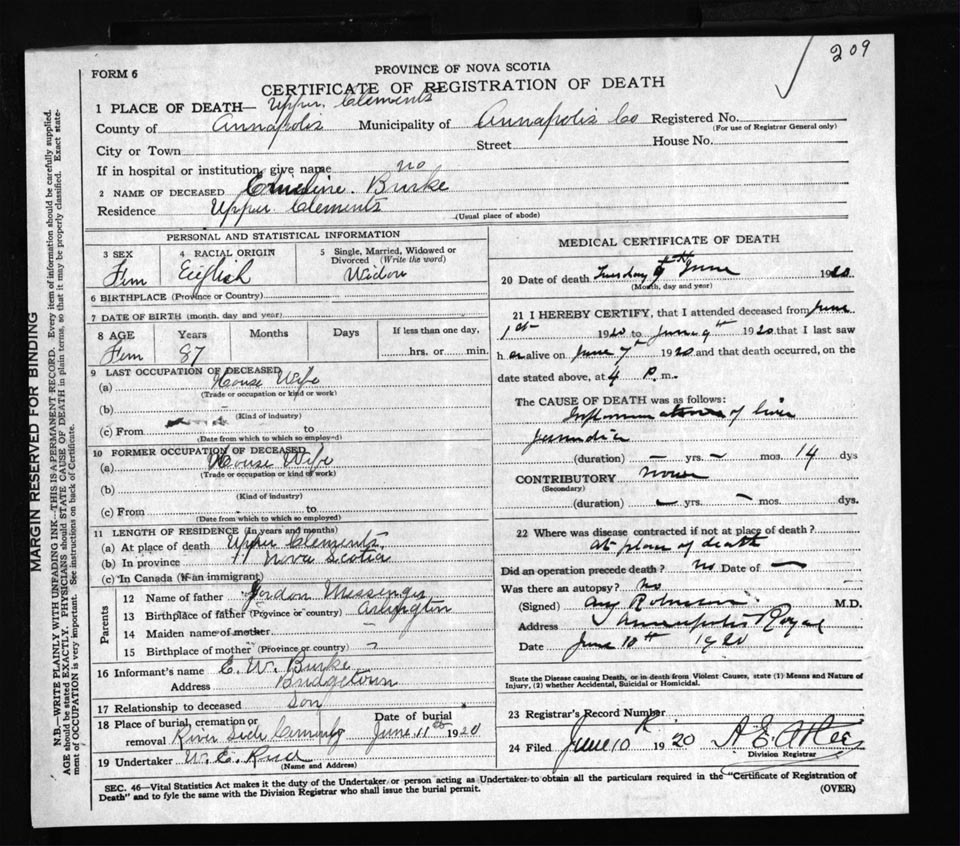 209
FORM 6
PROVINCE OF NOVA SCOTIA
CERTIFICATE OF REGISTRATION OF DEATH
1 PLACE OF DEATH— Upper Clements
County of Annapolis Municipality of Annapolis Co Registered No.
(For use of Registrar General only)
City or Town Street House No.
If in hospital or institution, give name no
2 NAME OF DECEASED Burke
Residence Upper Clements
(Usual place of abode)
PERSONAL AND STATISTICAL INFORMATION
3 SEX Fem
4 RACIAL ORIGIN English
5 Single, Married, Widowed or Divorced (Write the word)
Widow
6 BIRTHPLACE (Province or Country)
7 DATE OF BIRTH (month, day and year)
8 AGE Years Months Days If less than one day,
Fem 87 hrs. or min.
9 LAST OCCUPATION OF DECEASED
(a) House Wife
(Trade or occupation or kind or work)
(b)
(Kind of industry)
(c) From to
(Date from which to which so employed)
10 FORMER OCCUPATION OF DECEASED
(a) House Wife
(Trade or occupation or kind of work)
(b)
(Kind of industry)
(c) From to
(Date from which to which so employed)
11 LENGTH OF RESIDENCE (In years and months)
(a) At place of death Upper Clements
(b) In province Nova Scotia
(c) In Canada (If an immigrant)
Parents
12 Name of father Gordon Messenger
13 Birthplace of father (Province or country) Arlington
14 Maiden name of mother
15 Birthplace of mother (Province or country)
16 Informant's name E. W. Burke
Address Bridgetown
17 Relationship to deceased Son
18 Place of burial, cremation or removal River Side Date of burial June 11th 1920
19 Undertaker W. E.
(Name and Address)
MEDICAL CERTIFICATE OF DEATH
20 Date of death Tuesday 9th June 1920
(Month, day and year)
21 I HEREBY CERTIFY, that I attended deceased from June
1st 1920 to June 9th 1920 that I last saw
h er alive on June 7th 1920 and that death occurred, on the
date stated above, at 4 P. m.
The CAUSE OF DEATH was as follows:
of liver
(duration) — yrs. — mos. 14 dys
CONTRIBUTORY none
(Secondary)
(duration) — yrs. — mos. dys.
22 Where was disease contracted if not at place of death?
at place of death
Did an operation precede death? no Date of —
Was there an autopsy? no
(Signed) M.D.
Address Annapolis Royal
Date June 10th 1920
State the Disease causing Death, or in death from Violent Causes, state (1) Means and Nature of
Injury, (2) whether Accidental, Suicidal or Homicidal.
23 Registrar's Record Number
24 Filed June 10 1920 A. E.
Division Registrar
SEC. 46—Vital Statistics Act makes it the duty of the Undertaker or person acting as Undertaker to obtain all the particulars required in the "Certificate of Registration of
Death" and to fyle the same with the Division Registrar who shall issue the burial permit.
(OVER)
MARGIN RESERVED FOR BINDING
N.B.—WRITE PLAINLY WITH UNFADING INK—THIS IS A PERMANENT RECORD. Every item of information should be carefully supplied.
AGE should be stated EXACTLY. PHYSICIANS should STATE CAUSE OF DEATH in plain terms, so that it may be properly classified. Exact state-
ment of OCCUPATION is very important. See instructions on back of Certificate.